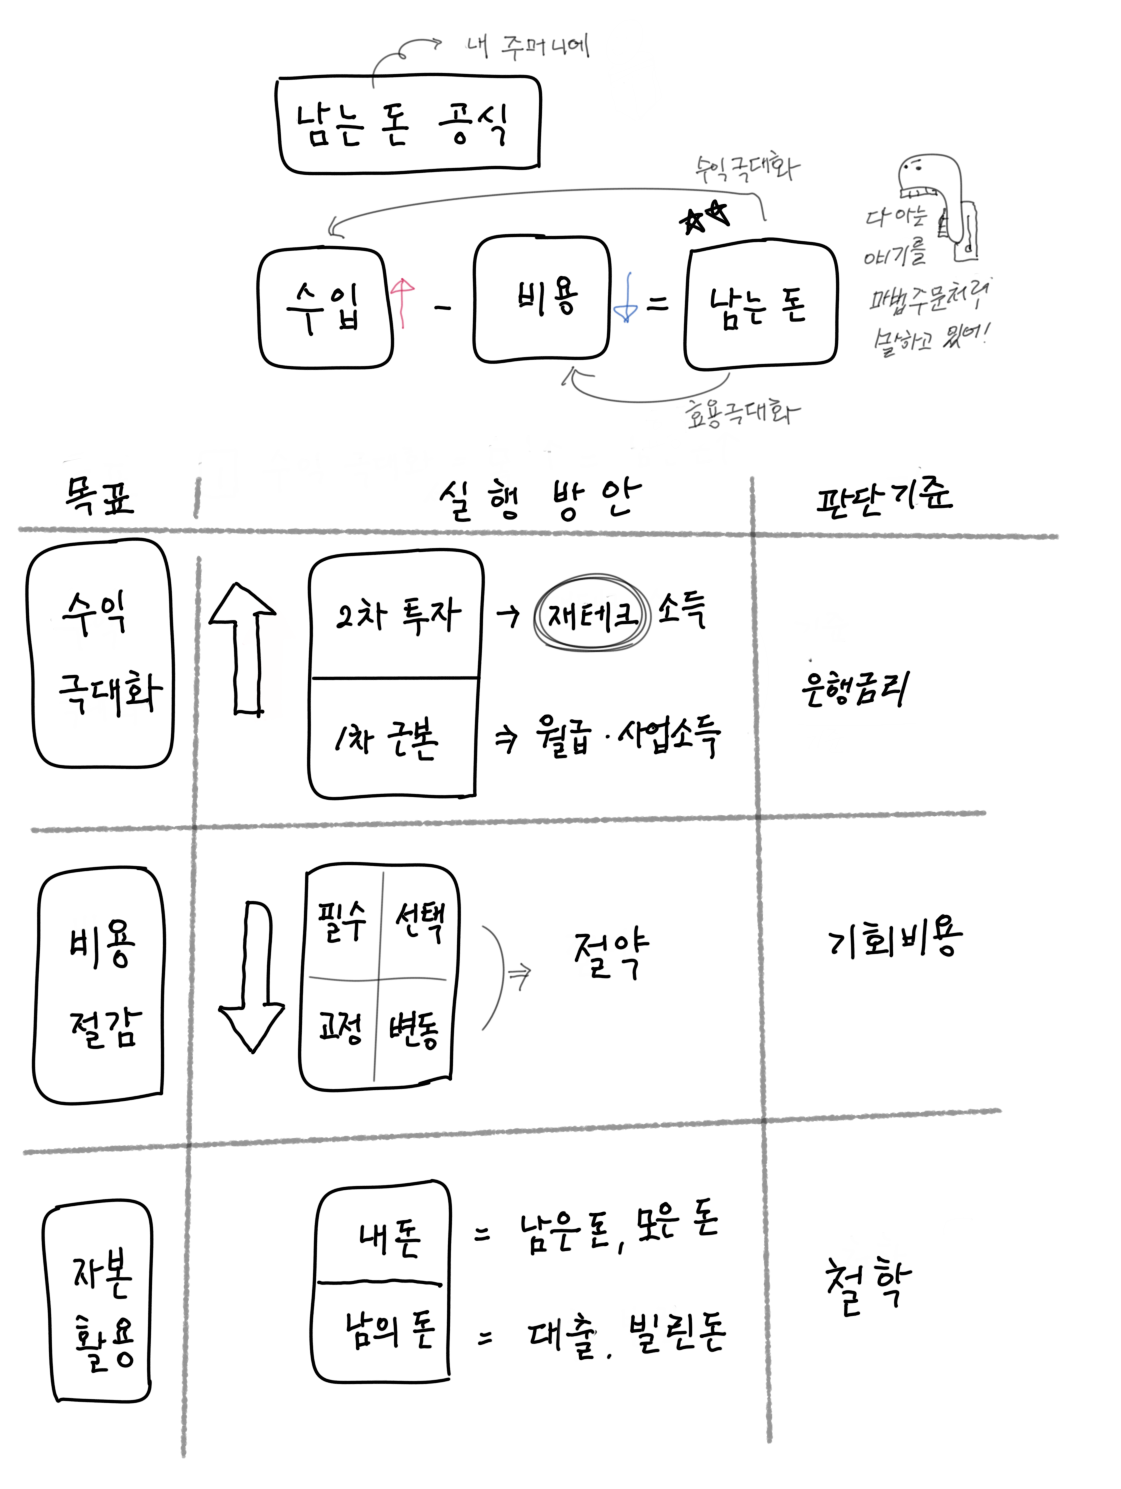 내 주머니에
남는 돈 공식
수익극대화
수입 - 비용 = 남는 돈
다 아는
얘기를
마법주문처럼
말하고 있어!
효용극대화
목표 실행방안 판단기준
수익
극대화
2차 투자 → 재테크 소득
1차 근본 ⇒ 월급 · 사업소득
은행금리
비용
절감
필수 선택
고정 변동
⇒ 절약
기회비용
자본
활용
내돈 = 남은돈, 모은 돈
남의 돈 = 대출. 빌린돈
철학